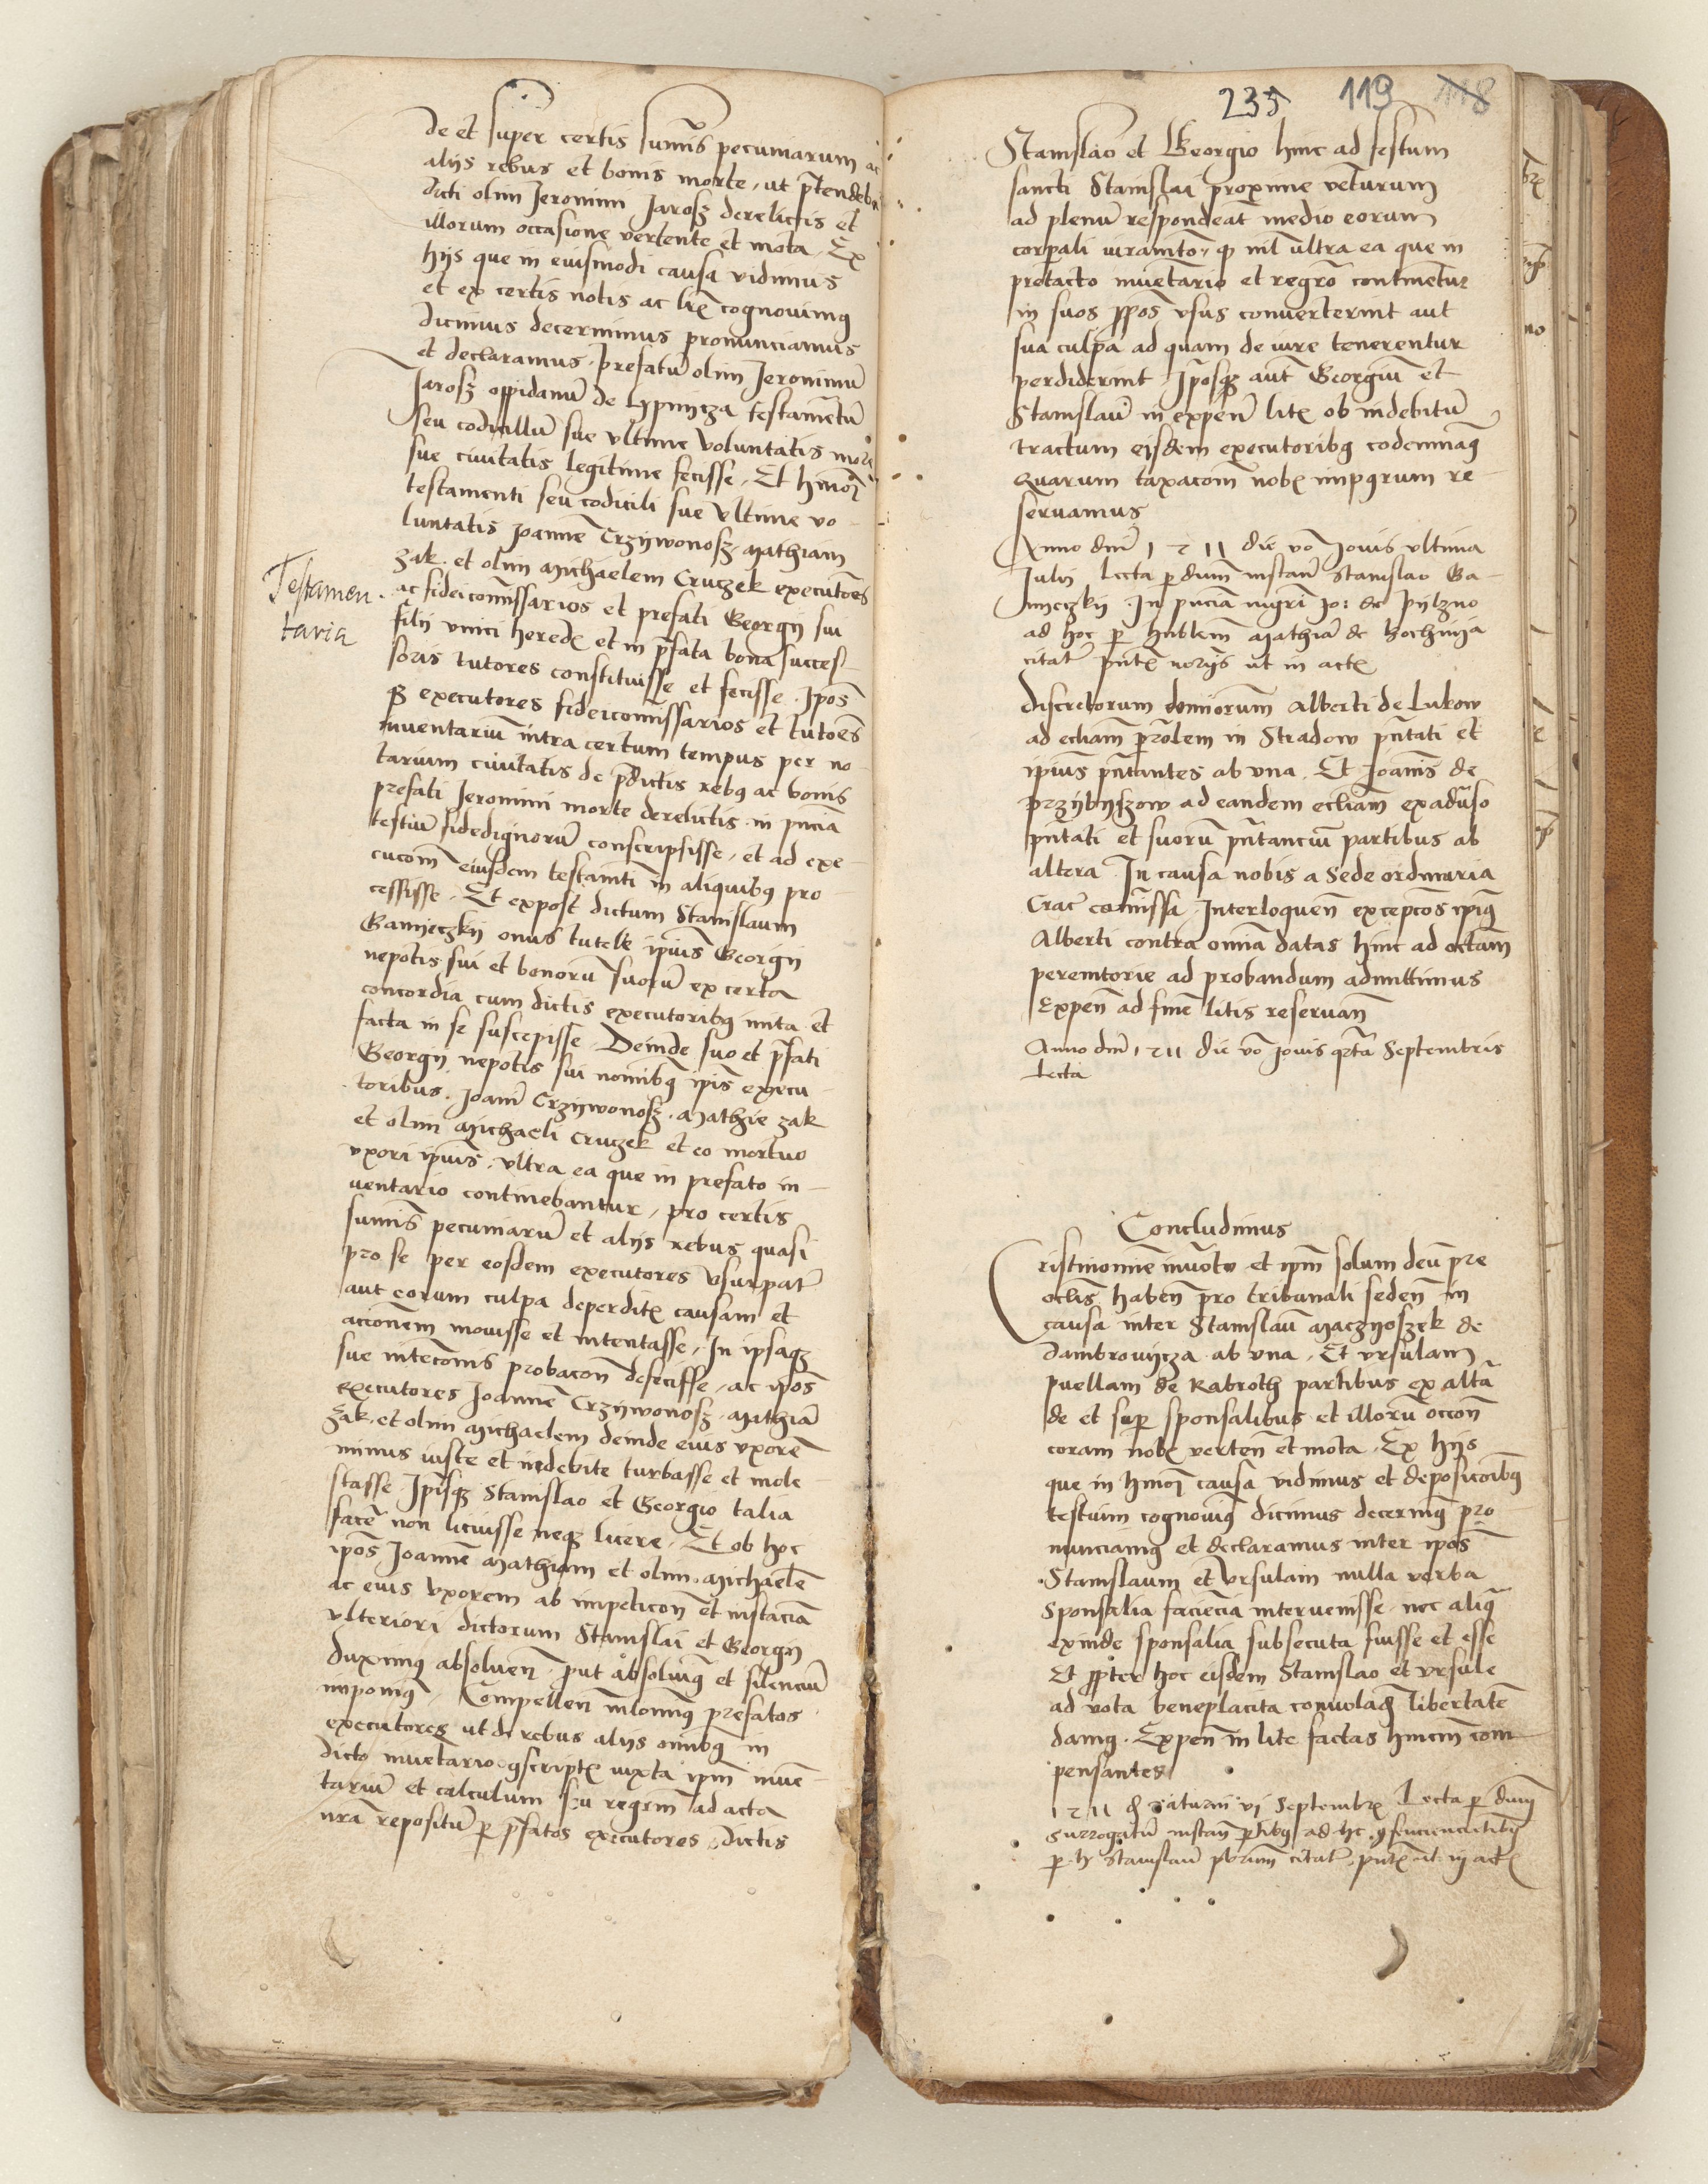 de et super certis sumis pecuniarum ac
alijs rebus et bonis morte, ut p̃tendeba
dicti olim Jeronimi Jarosz derelictis et
illorum occasione vertente et mota, Ex
hijs que in euismodi causa vidimus
et ex certis notis ac lrẽ cognouimꝰ
dicimus decernimus pronunciamus
et declaramus. prefatũ olim Jeronimũ
Jarosz oppidanũ de Lypnycza testamẽtũ
seu codicillũ sue vltime voluntatis more
sue ciuitatis legitime fecisse, Et hmõi
testamenti seu codicili sue vltime vo-
luntatis Joannẽ Crzywonosz, Mathiam
zak. et olim Michaelem Cruczek executoẽs
Testamen
taria
ac fideicomissarios et prefati Georgij sui
filij vnici heredẽ et in p̃fata bona succes-
soris tutores constituisse et fecisse. Ipos̃
qꝫ executores fideicomissarios et tutoẽs
inuentariũ intra certum tempus per no-
tarium ciuitatis de p̃dictis rebꝰ ac bonis
prefati Jeronimi morte derelictis in pñcia
testiũ fidedignorũ conscripsisse, et ad exe-
cucom̃ eiusdem testamti in aliquibꝰ pro-
cessisse. Et expost dictum Stanislaum
Gamyeczky onus tutele ipius Georgij
nepotis sui et bonorũ suorũ ex certa
concordia cum dictis executoribꝰ inita et
facta in se suscepisse. Deinde suo et p̃fati
Georgij nepotis sui nomibꝰ ipis̃ execu-
toribus. Joanĩ Crzywonosz. Mathie zak
et olim Michaeli Cruczek et eo mortuo
vxori ipius̃. vltra ea que in prefato in-
uentario continebantur, pro certis
sumis̃ pecuniarũ et alijs rebus quasi
pro se per eosdem executores vsurpatĩ
aut eorum culpa deperditꝭ causam et
accionẽm mouisse et intentasse, In ipsaqꝫ
sue intecõnis probacoñ defecisse, ac ipos̃
executores Joannẽ Crzywonosz. Mathiã
zak. et olim Michaelem deinde eius vxorẽ
minus iuste et indebite turbasse et mole-
stasse. Ipĩsqꝫ Stanislao et Georgio talia
facẽ non licuisse neqꝫ licere. Et ob hoc
ipos̃ Joannẽ Mathiam et olim Michaelẽ
ac eius vxorem ab impeticoñ et instãcia
vlteriori dictorum Stanislai et Georgij
duximꝰ absoluen̄. put absoluimꝰ et silenciũ
imponimꝰ, Compellen̄ prefatos
executores ut de rebus alijs omĩbꝰ in
dicto inuẽtario ꝯscriptꝭ iuxta ipm̃ inuẽ-
tariũ et calculum seu regrm̃ ad acta
nrã repositũ ꝑ p̃fatos executores, dictis
235 119 118
Stanislao et Georgio hinc ad festum
sancti Stanislai proxime vẽturum
ad plenũ respondeat̃ medio eorum
corpali iuramto. ꝙ nil̃ vltra ea que in
pretacto inuẽtario et regrõ continẽtur
in suos ꝓpos̃ vsus conuerterint aut
sua culpa ad quam de iure tenerentur
perdiderint. Iposqꝫ aũt Georgiũ et
Stanislaũ in expeñ litꝭ ob indebitũ
tractum eisdem executoribꝰ codemnãꝰ
Quarum taxacom̃ nobꝭ impꝯrum re-
seruamus
Anno dni 1511 die vo Jouis vltima
Julij lecta ꝑ dum̃ instan̄ Stanislao Ga-
mycczky. In pñcia mgrĩ Jo: de pylzno
ad hoc ꝑ hñblem̃ Mathiã de Bochnya
citat̃ pñtꝭ norijs ut in actꝭ
Discretorum dominorum Alberti de Lukow
ad ecliam̃ pr̃olem in Stradow pñtati et
ipius pñtantes ab vna. Et Joanis̃ de
przybyszow ad eandem ecliam̃ exadũso
pñtati et suorũ pñtanciũ partibus ab
altera. In causa nobis a Sede ordinaria
Crac̃ comissa. Interloquen̄ excepcões ipiꝰ
Alberti contra omĩa datas hinc ad octam̃
peremtorie ad probandum admittimus
Expeñ ad finẽ litis reseruan̄
Anno dni 1511 die vo Jouis qrta Septembris
Lecta
Concludimus
Cristinomine inuoto et ipm̃ solum deũ pre
oclis̃ haben̄ pro tribunali seden̄ in
causa inter Stanislaũ Maczyoszek de
Dambrowycza ab vna. Et vrsulam
puellam de Kabroth partibus ex altã
de et sup sponsalibus et illorũ occon̄
coram nobꝭ verten̄ et mota. Ex hijs
que in hmõi causa vidimus et deposicoĩbꝰ
testium cognouimꝰ dicimus decernimꝰ pro
nunciamꝰ et declaramus inter ipos̃
Stanislaum et vrsulam nulla verba
Sponsalia faciẽcia interuenisse. nec aliqã
exinde sponsalia subsecuta fuisse et esse
Et ꝓpter hoc eisdem Stanislao et vrsule
ad vota beneplacita conuolãdi libertatẽ
damꝰ. Expeñ in lite factas hincin̄ com-
pensantes
1511 d Saturni vi Septembrꝭ Lecta ꝑ dum̃
surrogatũ instan̄ ꝑtibꝰ ad hc
ꝑ h Stanislaũ citat̃, pñtꝭ ut in actꝭ